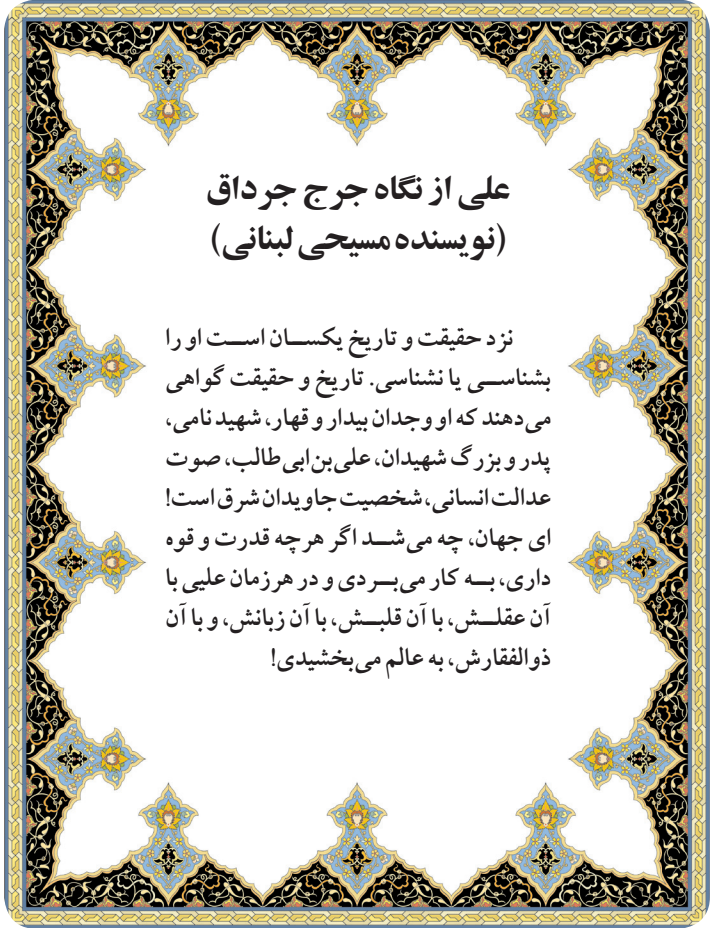 علی از نگاه جرج جرداق
(نویسنده مسیحی لبنانی)
نزد حقیقت و تاریخ یکسان است او را
بشناسی یا نشناسی. تاریخ و حقیقت گواهی
می‌دهند که او وجدان بیدار و قهار، شهید نامی،
پدر و بزرگ شهیدان، علی‌بن‌ابی‌طالب، صوت
عدالت انسانی، شخصیت جاویدان شرق است!
ای جهان، چه می‌شد اگر هرچه قدرت و قوه
داری، به کار می‌بردی و در هرزمان علیی با
آن عقلش، با آن قلبش، با آن زبانش، و با آن
ذوالفقارش، به عالم می‌بخشیدی!